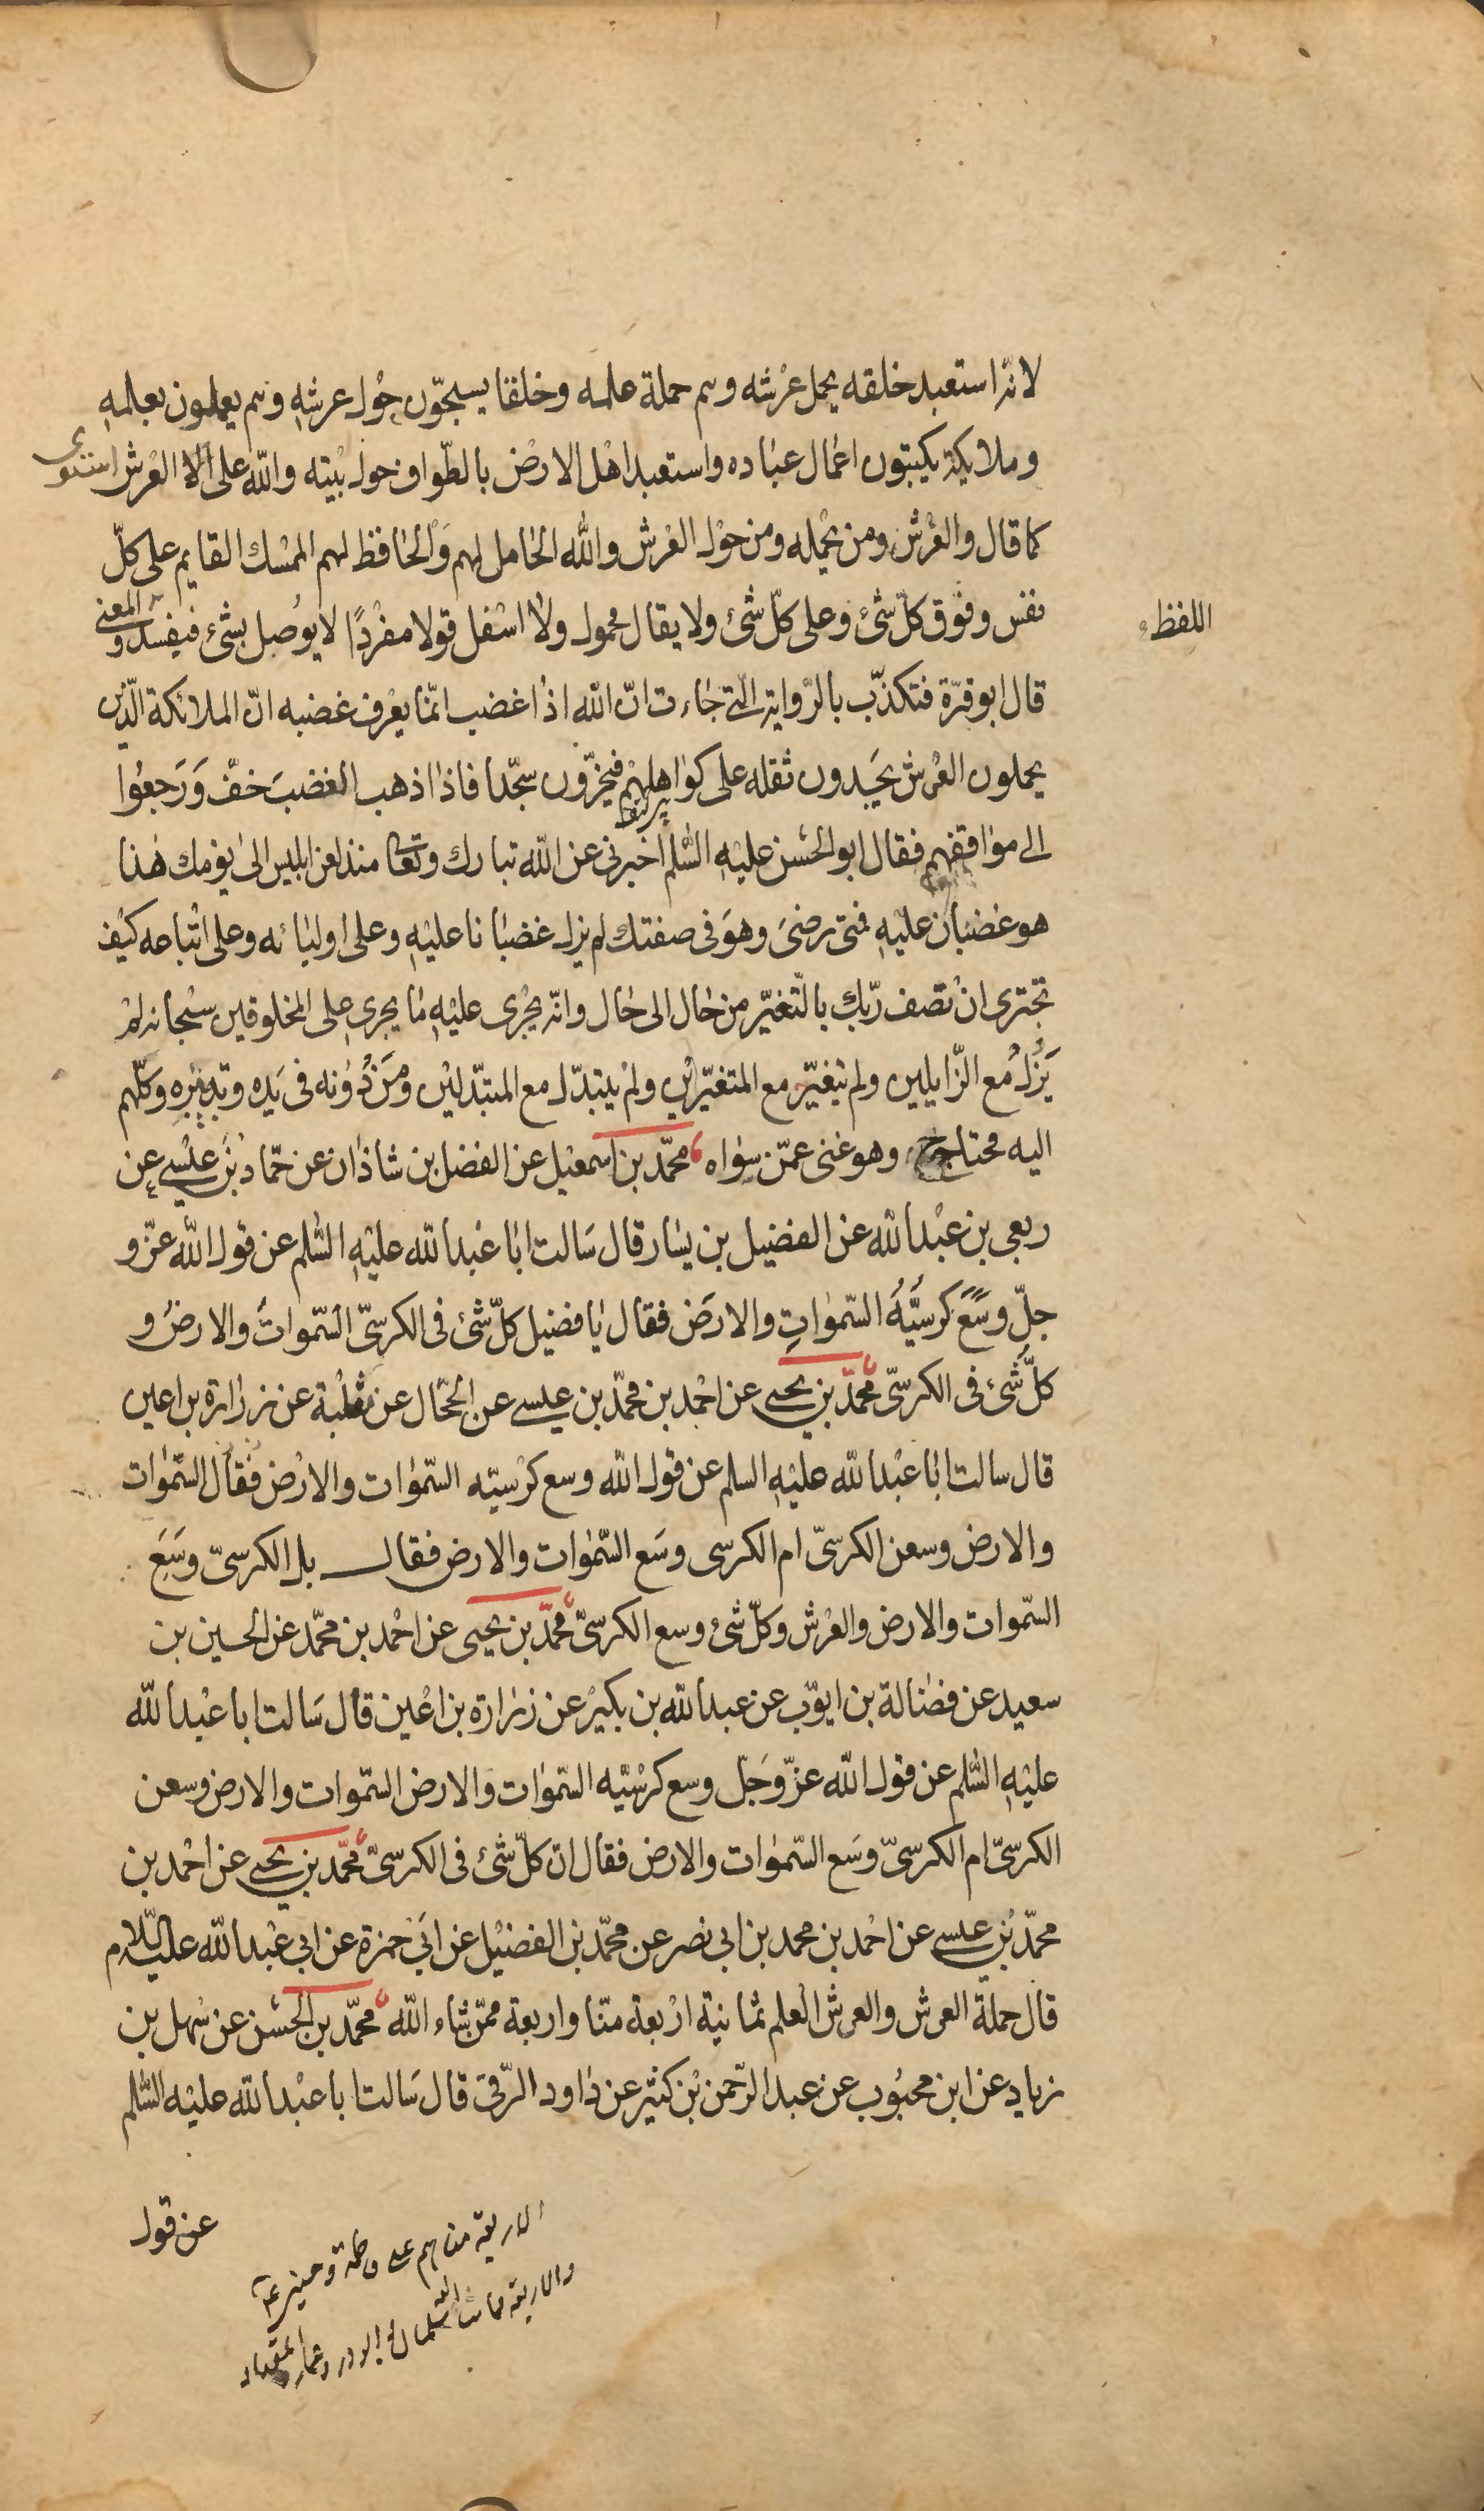 لانّه استعبد خلقه بحمل عرشه وهم حملة علمه وخلقا يسبحّون حول عرشه وهم يعملون بعلمه
وملايكة يكتبون اعمال عباده واستعبد اهل الارض بالطّواف حول بيته والله على العرش استوى
كما قال والعرش ومن يحمله ومن حول العرش والله الحامل لهم والحافظ لهم الممسك القايم على كلّ
نفس وفوق كلّ شئ وعلى كلّ شئ ولا يقال محمول ولا اسفل قولا مفردًا لا يوصل بشئ فيفسد والمعنى
اللفظ
قال ابو قرّة فتكذّب بالرّواية الّتي جاءت انّ الله اذا غضب انّما يعرف غضبه انّ الملائكة الّذين
يحملون العرش يجدون ثقله على كواهلهم فيخرّون سجّدا فاذا اذهب الغضب خفّ ورجعوا
الى مواقفهم فقال ابو الحسن عليه السّلم اخبرني عن الله تبارك وتعا منذ لعن ابليس الى يومك هذا
هو غضبان عليه فمتى رضى وهو في صفتك لم يزل غضبانا عليه وعلى اوليائه وعلى اتباعه كيف
تجترى ان تصف ربّك بالتّغيّر من حال الى حال وانّه يجرى عليه ما يجرى على المخلوقين سبحانه لم
يزل مع الزّايلين ولم يتغيّر مع المتغيّرين ولم يتبدّل مع المتبدّلين ومن دونه في يده وتدبيره وكلّهم
اليه محتاج وهو غنى عمّن سواه محمّد بن اسمعيل عن الفضل بن شاذان عن حمّاد بن عيسى عن
ربعى بن عبد الله عن الفضيل بن يسار قال سالت ابا عبد الله عليه السّلم عن قول الله عزّ و
جلّ وسع كرسيّه السّموات والارض فقال يا فضيل كلّ شئ في الكرسىّ السّموات والارض و
كلّ شئ في الكرسىّ محمّد بن يحيى عن احمد بن محمّد بن عيسى عن الحجّال عن ثعلبة عن زرارة بن اعين
قال سالت ابا عبد الله عليه السلم عن قول الله وسع كرسيّه السّموات والارض فقال السّموات
والارض وسعن الكرسىّ ام الكرسى وسع السّموات والارض فقال بل الكرسىّ وسع
السّموات والارض والعرش وكلّ شئ وسع الكرسىّ محمّد بن يحيى عن احمد بن محمّد عن الحسين بن
سعيد عن فضالة بن ايوّب عن عبد الله بن بكير عن زرارة بن اعين قال سالت ابا عبد الله
عليه السّلم عن قول الله عزّ وجلّ وسع كرسيّه السّموات والارض السّموات والارض وسعن
الكرسىّ ام الكرسىّ وسع السّموات والارض فقال ان كلّ شئ في الكرسىّ محمّد بن يحيى عن احمد بن
محمّد بن عيسى عن احمد بن محمد بن ابى نصر عن محمّد بن الفضيل عن ابى حمزة عن ابى عبد الله عليه السّلام
قال حملة العرش والعرش العلم ثمانية اربعة منّا واربعة ممّن شاء الله محمّد بن الحسن عن سهل بن
زياد عن ابن محبوب عن عبد الرّحمن بن كثير عن داود الرّقى قال سالت ابا عبد الله عليه السّلم
عن قول